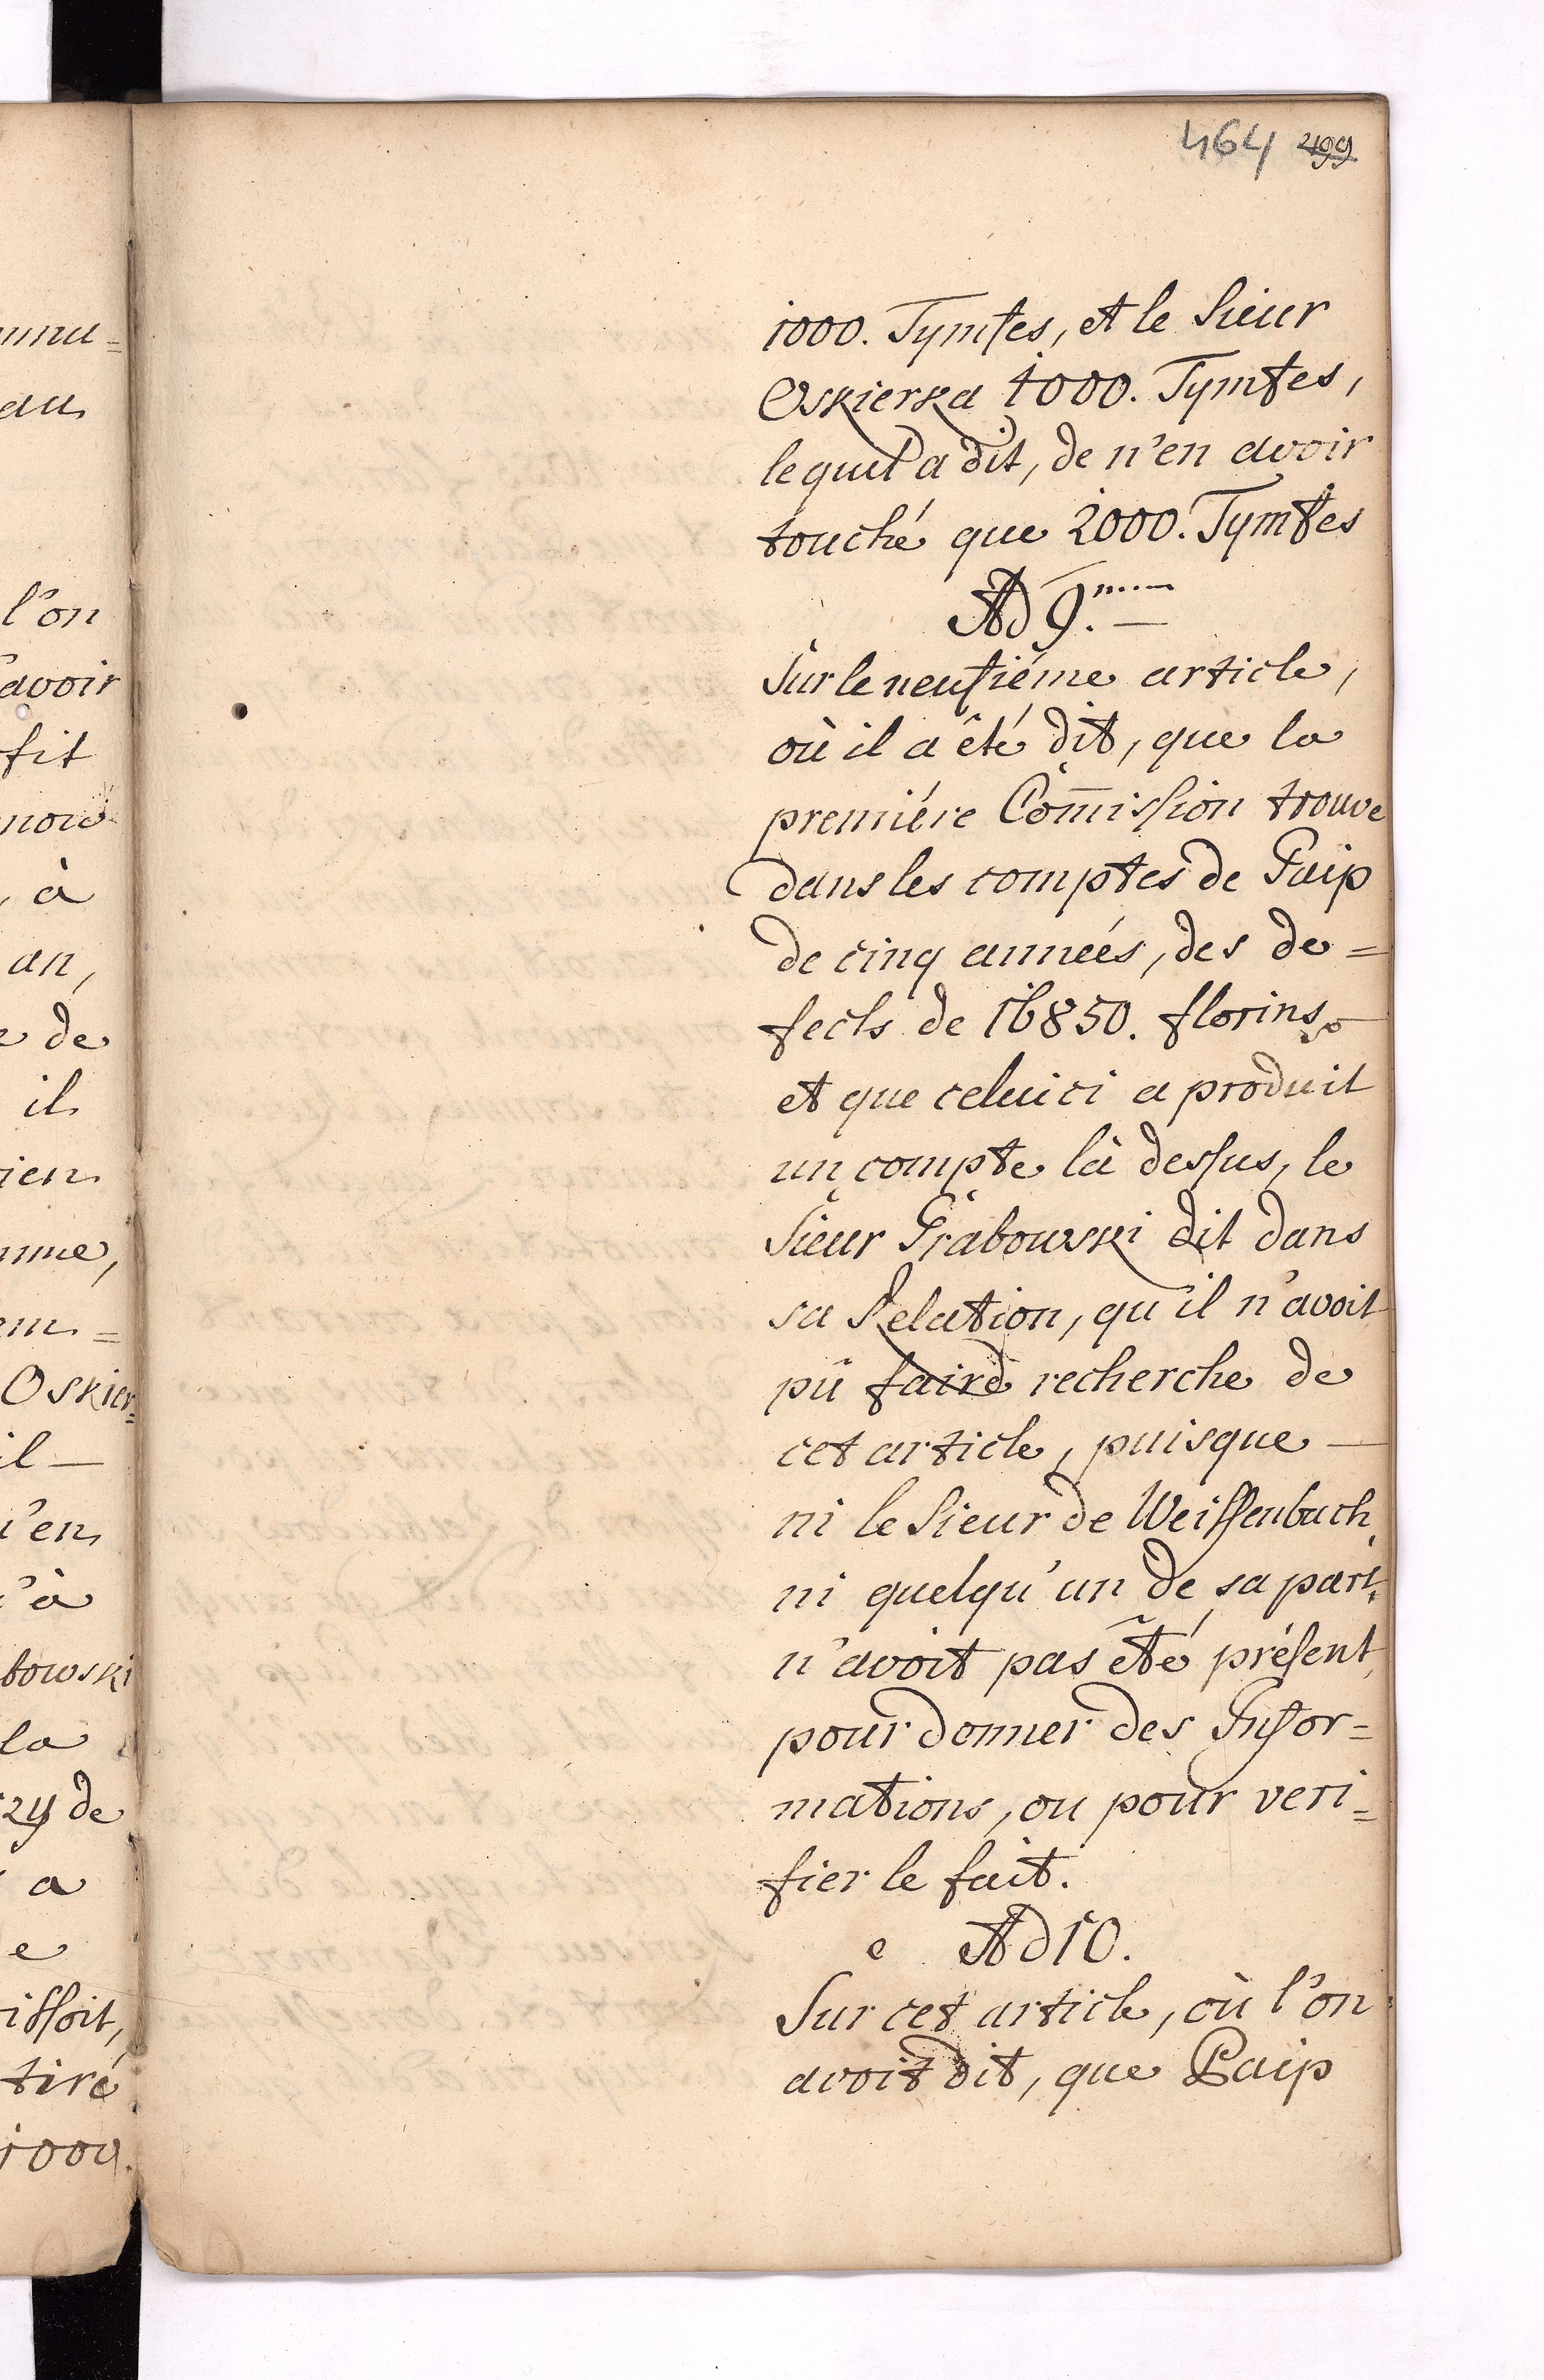 464 499
mu=
au
l'on
avoir
fit
, à
an,
de
il
ien
me,
em=
Oskier=
il —
'en
'à
bowski
la
de
a
e
issoit,
tiré
1000.
1000. Tymfes, et le Sieur
Oskierka 1000. Tymfes,
lequel a dit, de n'en avoir
touché que 2000. Tymfes
Ad 9.num
Sur le neufiéme article,
où il a êté dit, que la
premiére Com̄ission trouve
dans les comptes de Paip
de cinq années, des de=
fects de 16850. florins
et que celuici a produit
un compte là dessus, le
Sieur Grabowski dit dans
sa Relation, qu'il n'avoit
pû faire recherche de
cet article, puisque —
ni le Sieur de Weissenbach,
ni quelqu'un de sa part,
n'avoit pas êté présent,
pour donner des Infor=
mations, ou pour veri=
fier le fait.
Ad 10.
Sur cet article, où l'on
avoit dit, que Paip